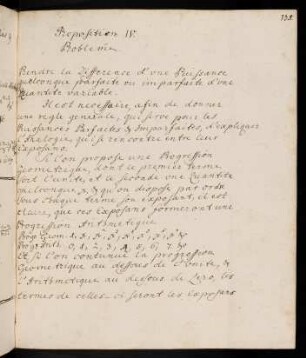 132
Proposition IV.
Probleme
Prendre la Difference d'une Puissance
quelconque parfaite ou imparfaite d'une
Quantité variable.
Il est necessaire, afin de donner
une regle generale, qui serve pour les
Puissances Parfaites & Imparfaites, d'expliquer
l'Analogie, qui se rencontre entre leurs
Exposans.
Si l'on propose une Progression
Geometrique, dont le premier terme
soit l'Unité et le second une Quantité
quelconque x, & qu'on dispose par ordre
sous chaque terme son exposant, il est
claire, que ces Exposans formeront une
Progression Arithmetique
Prog. Geom. 1, x, x², x³, x⁴, x⁵, x⁶, x⁷ &c
Prog. Arith. 0, 1, 2, 3, 4, 5, 6, 7, &c
Et si l'on continue la progression
Geometrique au dessous de l'Unité, &
l'Arithmetique au dessous de Zero, les
termes de celle-ci seront les Exposans